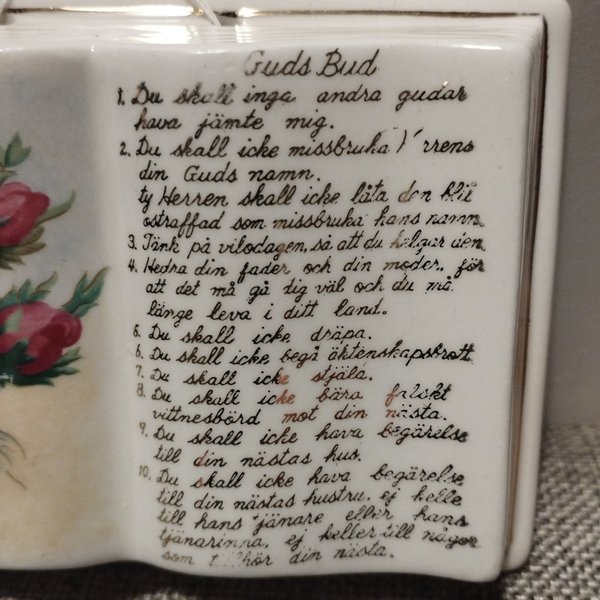 Guds Bud
1. Du skall inga andra gudar
hava jämte mig.
2. Du skall icke missbruka H rrens
din Guds namn.
ty Herren skall icke låta den bli
ostraffad som missbruka hans namn.
3. Tänk på vilodagen, så att du helgar den.
4. Hedra din fader och din moder, för
att det må gå dig väl och du må
länge leva i ditt land.
5. Du skall icke dräpa.
6. Du skall icke begå äktenskapsbrott
7. Du skall icke stjäla.
8. Du skall icke bära falskt
vittnesbörd mot din nästa.
9. Du skall icke hava begärelse
till din nästas hus.
10. Du skall icke hava begärelse
till din nästas hustru, ej helle
till hans tjänare eller hans
tjänarinna, ej heller till något
som tillhör din nästa.